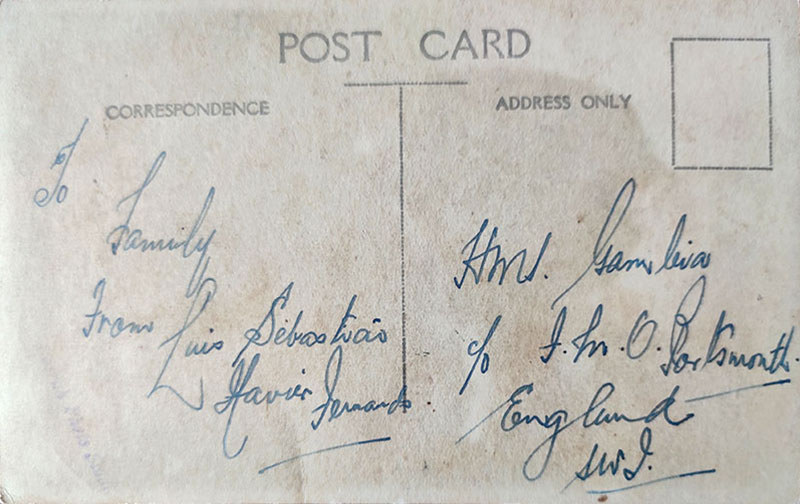 POST CARD
CORRESPONDENCE
ADDRESS ONLY
To
Family
From Luis Sebastião
Xavier Fernands.
HMS. Gambia
c/o F.M.O. Portsmouth.
England
SW1.